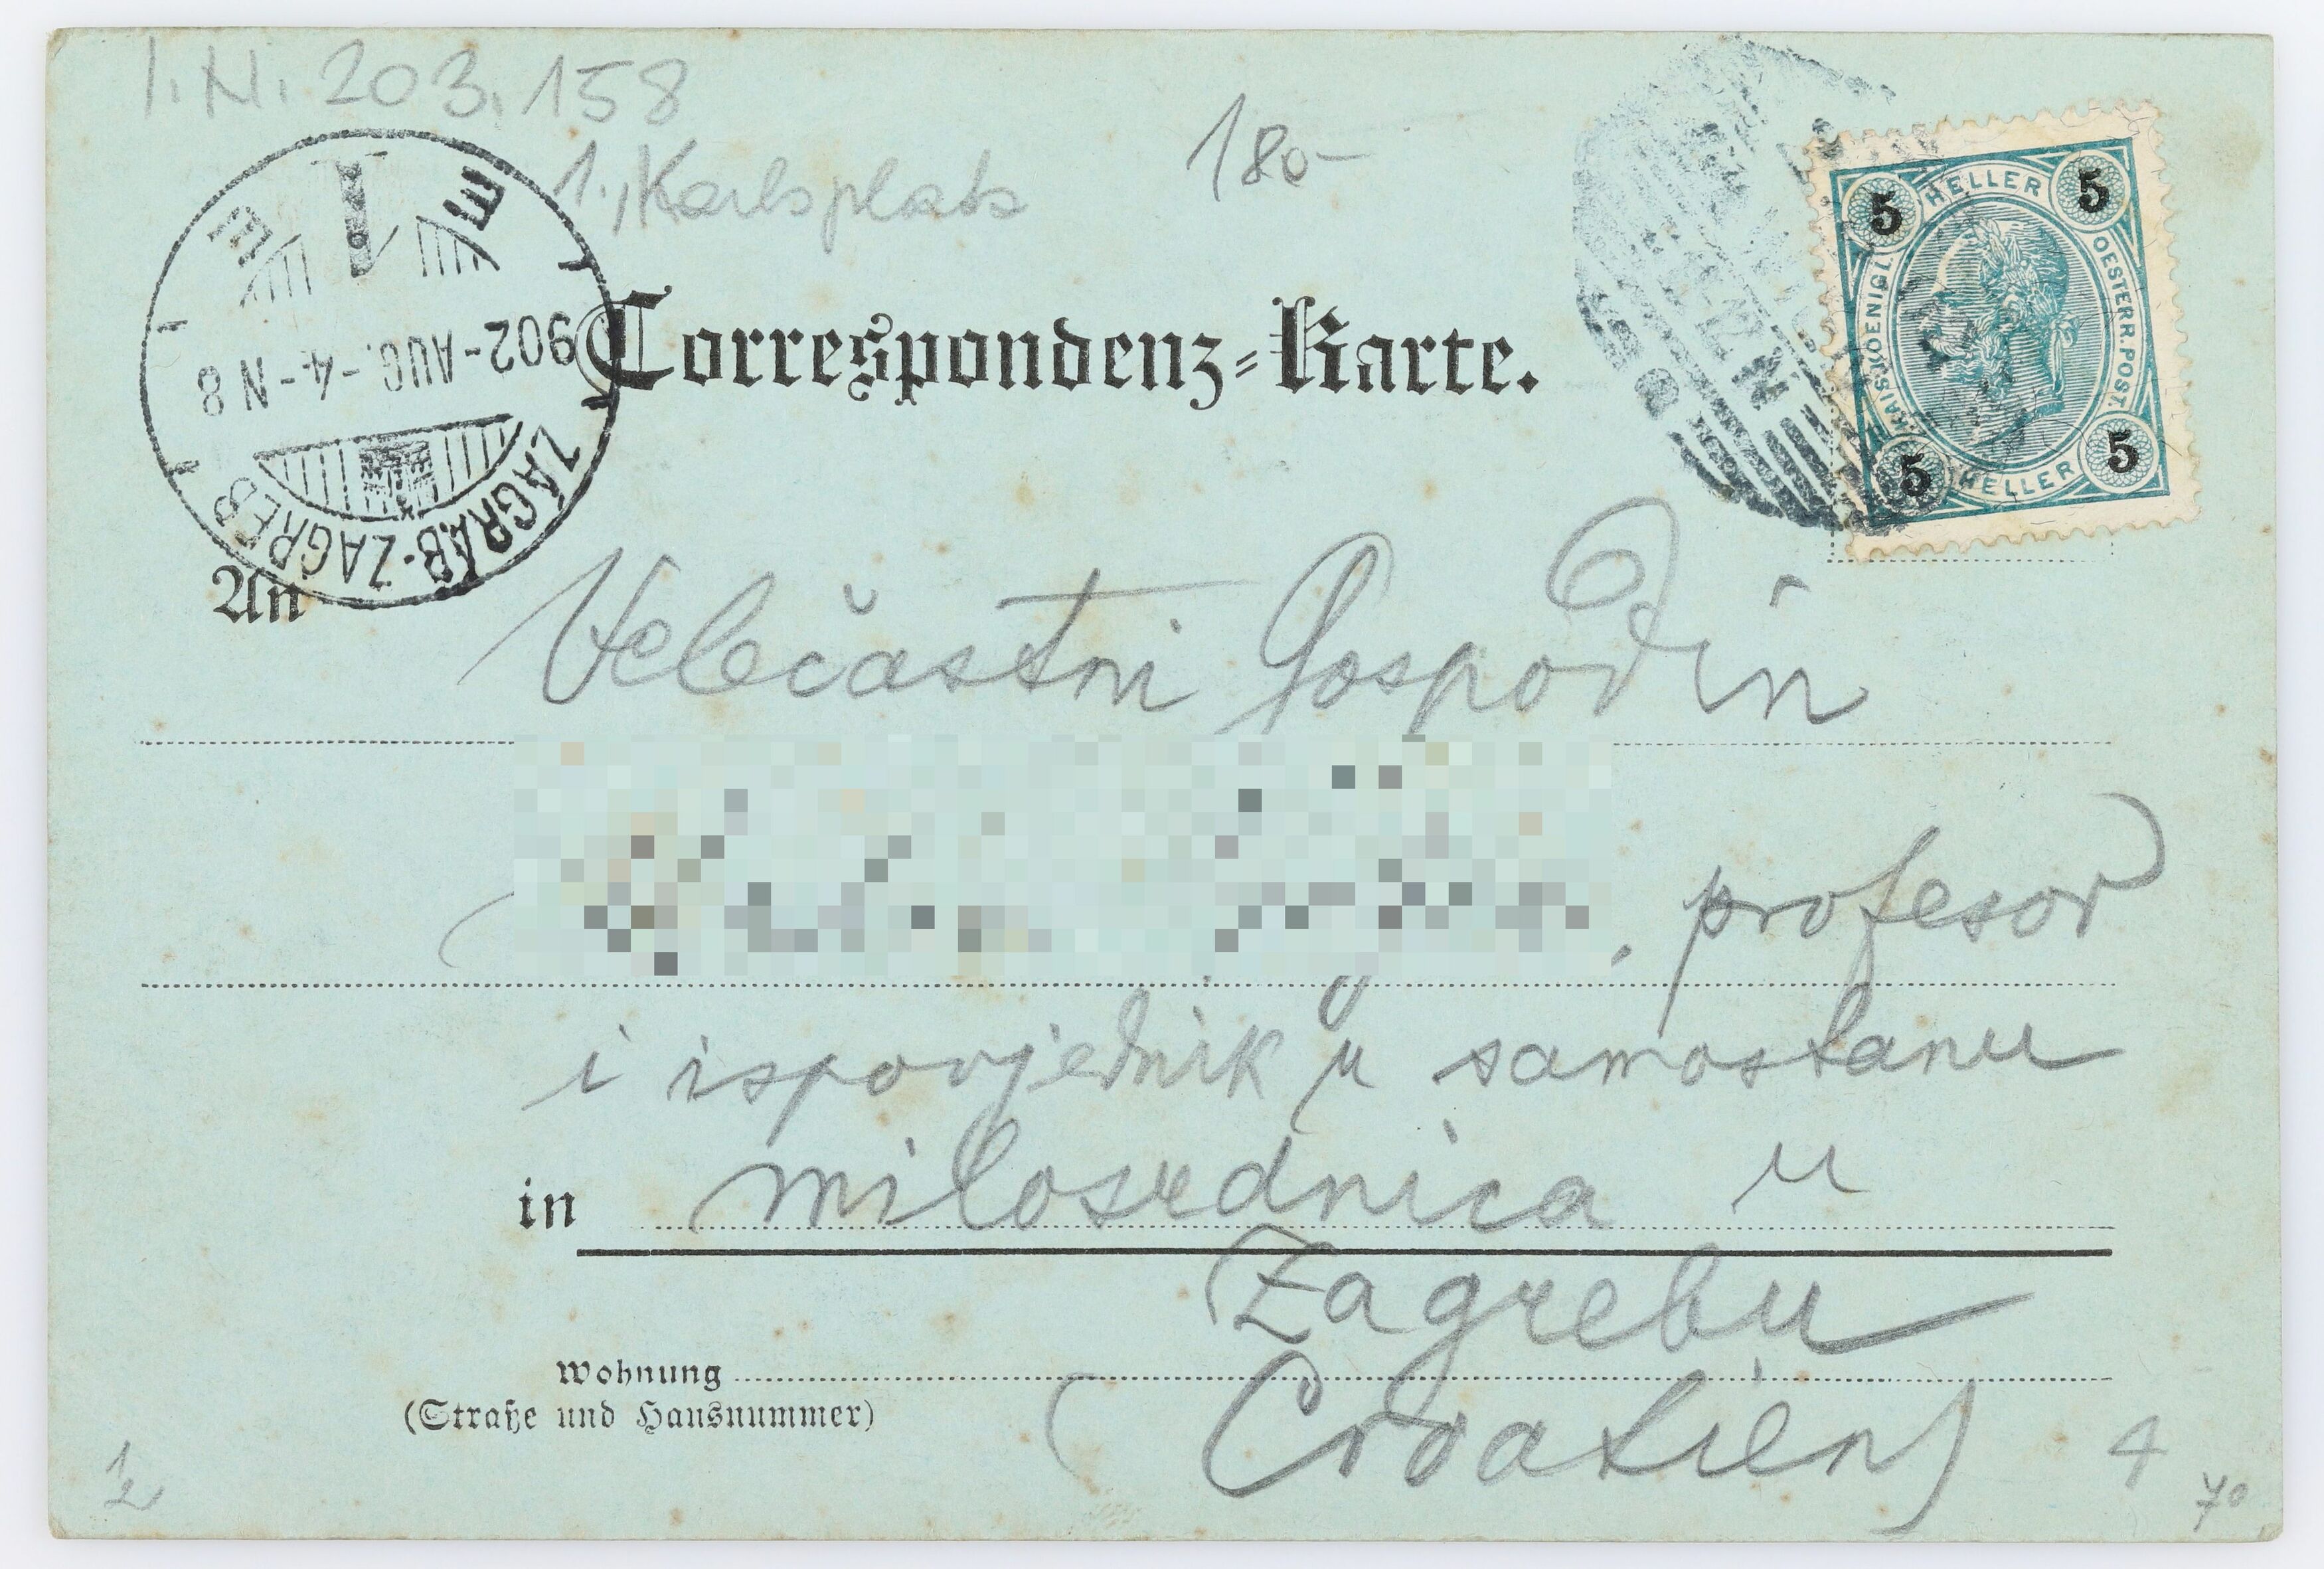 I. N. 203.158
1., Karlsplatz
180-
902-AUG.-4.-N8
ZÁGRÁB-ZAGREB
Correspondenz-Karte.
5 HELLER 5
KAIS. KOENIGL. OESTERR. POST.
5 HELLER 5
An Velečastni Gospodin
, profesor
i ispovjednik u samostanu
in milosrdnica u
Zagrebu
Wohnung
(Straße und Hausnummer)
(Croatien)
4
70
1/2